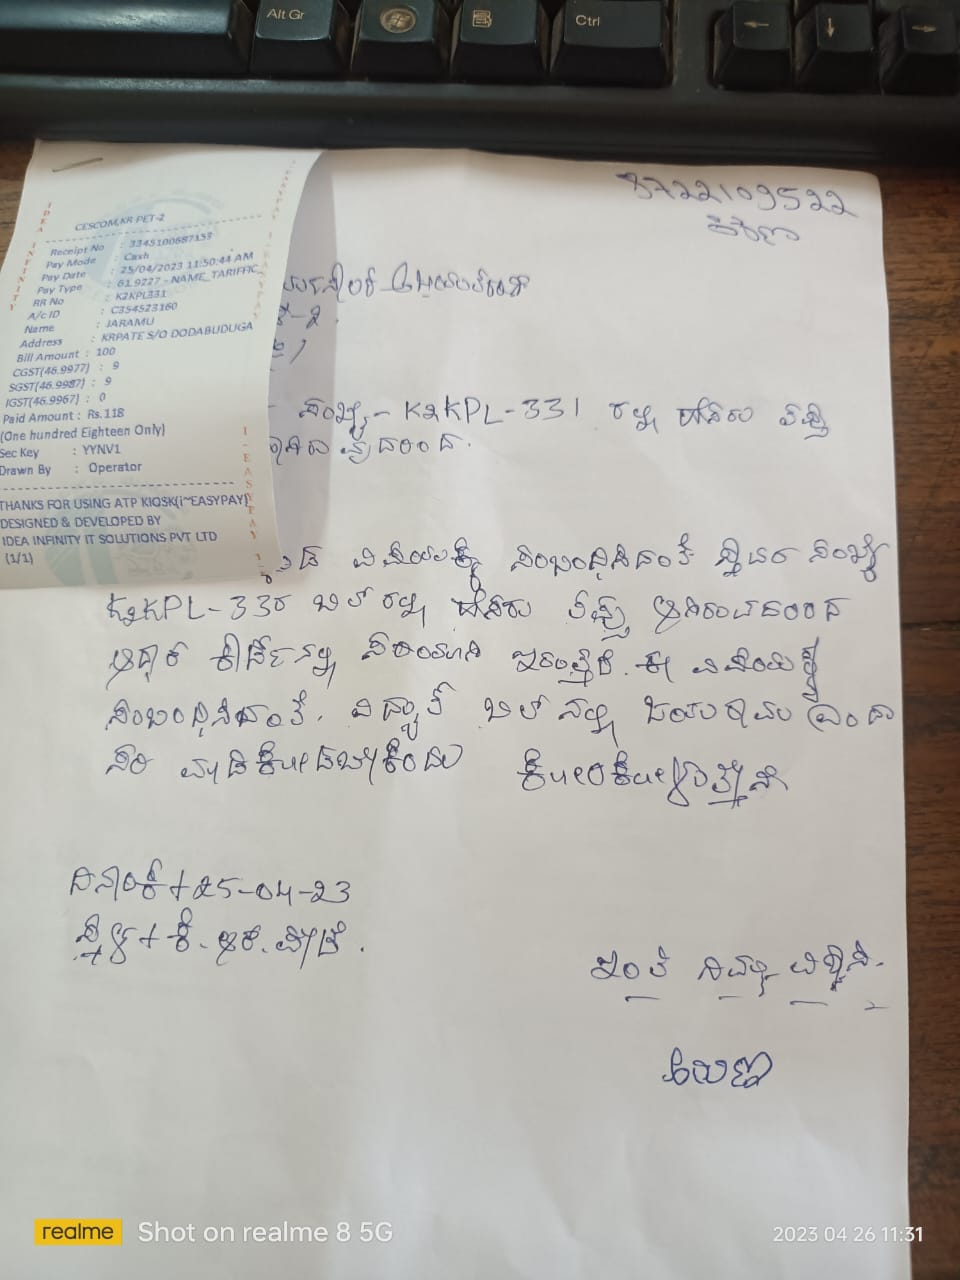 Alt Gr
Ctrl
8722109522
ಕಿರಣ
CESCOM,KR PET-2
Receipt No : 3345100687153
Pay Mode : Cash
Pay Date : 25/04/2023 11:50:44 AM
Pay Type : 61.9227 - NAME_TARIFFIC_
RR No : K2KPL331
A/c ID : C354523160
Name : JARAMU
Address : KRPATE S/O DODABUDUGA
Bill Amount : 100
CGST(46.9977) : 9
SGST(46.9987) : 9
IGST(46.9967) : 0
Paid Amount : Rs.118
(One hundred Eighteen Only)
Sec Key : YYNV1
Drawn By : Operator
THANKS FOR USING ATP KIOSK(i~EASYPAY)
DESIGNED & DEVELOPED BY
IDEA INFINITY IT SOLUTIONS PVT LTD
(1/1)
ಸಂಖ್ಯೆ - K2KPL-331 ರಲ್ಲಿ ಹೆಸರು
ವಿಷಯಕ್ಕೆ ಸಂಬಂಧಿಸಿದಂತೆ ಸ್ಥಾವರ ಸಂಖ್ಯೆ
K2KPL-33 ಬಿಲ್ ರಲ್ಲಿ ಹೆಸರು
ಆಧಾರ್ ಕಾರ್ಡ್ ನಲ್ಲಿ ಇರುತ್ತದೆ. ಈ ವಿಷಯಕ್ಕೆ
ಸಂಬಂಧಿಸಿದಂತೆ. ವಿದ್ಯುತ್ ಬಿಲ್ ನಲ್ಲಿ ಜಯರಾಮು ಎಂದು
ಸರಿ ಮಾಡಿಕೊಡಬೇಕೆಂದು ಕೋರಿಕೊಳ್ಳುತ್ತೇನೆ
ದಿನಾಂಕ + 25-04-23
ಸ್ಥಳ + ಕೆ. ಆರ್. ಪೇಟೆ.
ಇಂತಿ ನಿಮ್ಮ ವಿಶ್ವಾಸಿ.
realme Shot on realme 8 5G
2023 04 26 11:31